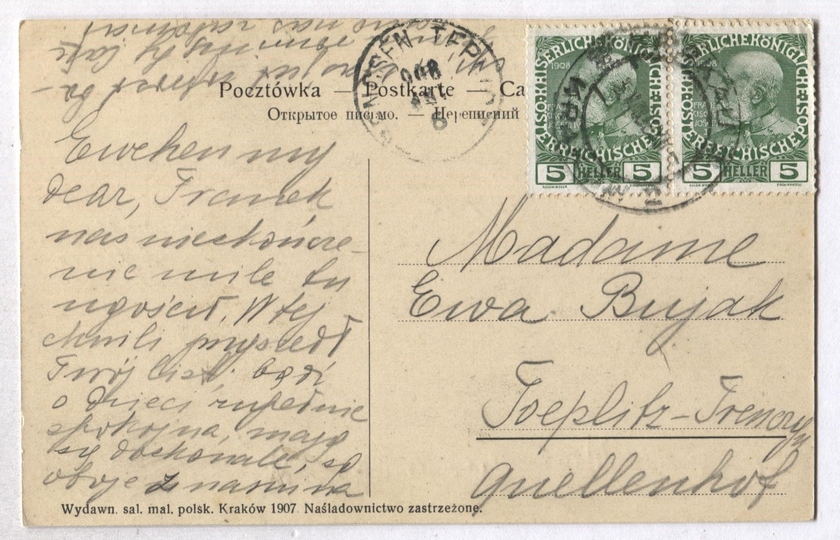 Pocztówka — Postkarte — Ca
Открытое письмо. — Переписний
1908
KAISERLICHE KÖNIGLICHE
ÖSTERREICHISCHE POST
5 HELLER 5
KAISERLICHE KÖNIGLICHE
ÖSTERREICHISCHE POST
5 HELLER 5
908
Ewehen my
dear, Franek
nas nieskończe-
nie mile tu
ugościł. W tej
chwili przyszedł
Twój list. bądź
o dzieci zupełnie
spokojna, mają
się doskonale, są
oboje z nami na
Madame
Ewa Bujak
Toeplitz-Trenczy
Quellenhof
Wydawn. sal. mal. polsk. Kraków 1907. Naśladownictwo zastrzeżone.